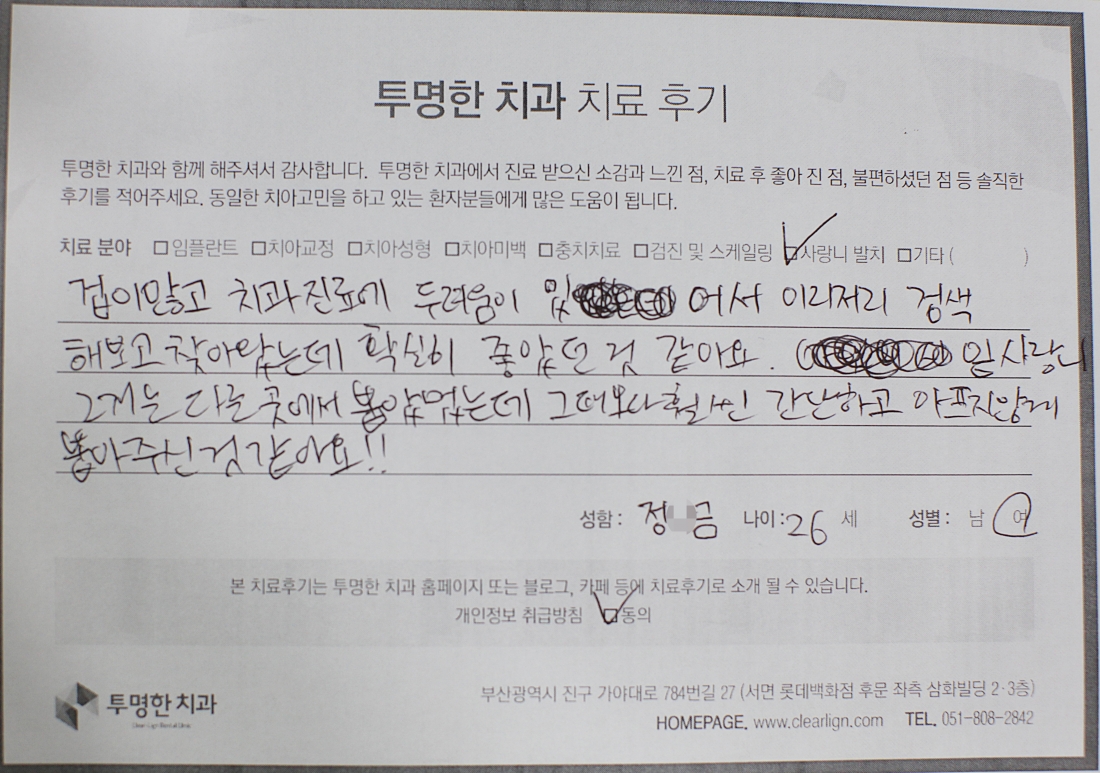 투명한 치과 치료 후기
투명한 치과와 함께 해주셔서 감사합니다. 투명한 치과에서 진료 받으신 소감과 느낀 점, 치료 후 좋아 진 점, 불편하셨던 점 등 솔직한
후기를 적어주세요. 동일한 치아고민을 하고 있는 환자분들에게 많은 도움이 됩니다.
치료 분야 □임플란트 □치아교정 □치아성형 □치아미백 □충치치료 □검진 및 스케일링 ☑사랑니 발치 □기타 ( )
겁이많고 치과진료에 두려움이 있 어서 이리저리 검색
해보고 찾아왔는데 확실히 좋았던 것 같아요. 사랑니
그거는 다른 곳에서 뽑았었는데 그때보다 훨씬 간단하고 아프지않게
뽑아주신것같아요!!
성함 : 정 금 나이 : 26 세 성별 : 남 여
본 치료후기는 투명한 치과 홈페이지 또는 블로그, 카페 등에 치료후기로 소개 될 수 있습니다.
개인정보 취급방침 ☑동의
투명한 치과
부산광역시 진구 가야대로 784번길 27 (서면 롯데백화점 후문 좌측 삼화빌딩 2·3층)
HOMEPAGE. www.clearlign.com TEL. 051-808-2842